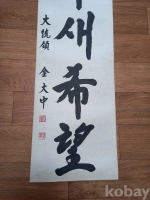 새希望
大統領
金大中
kobay